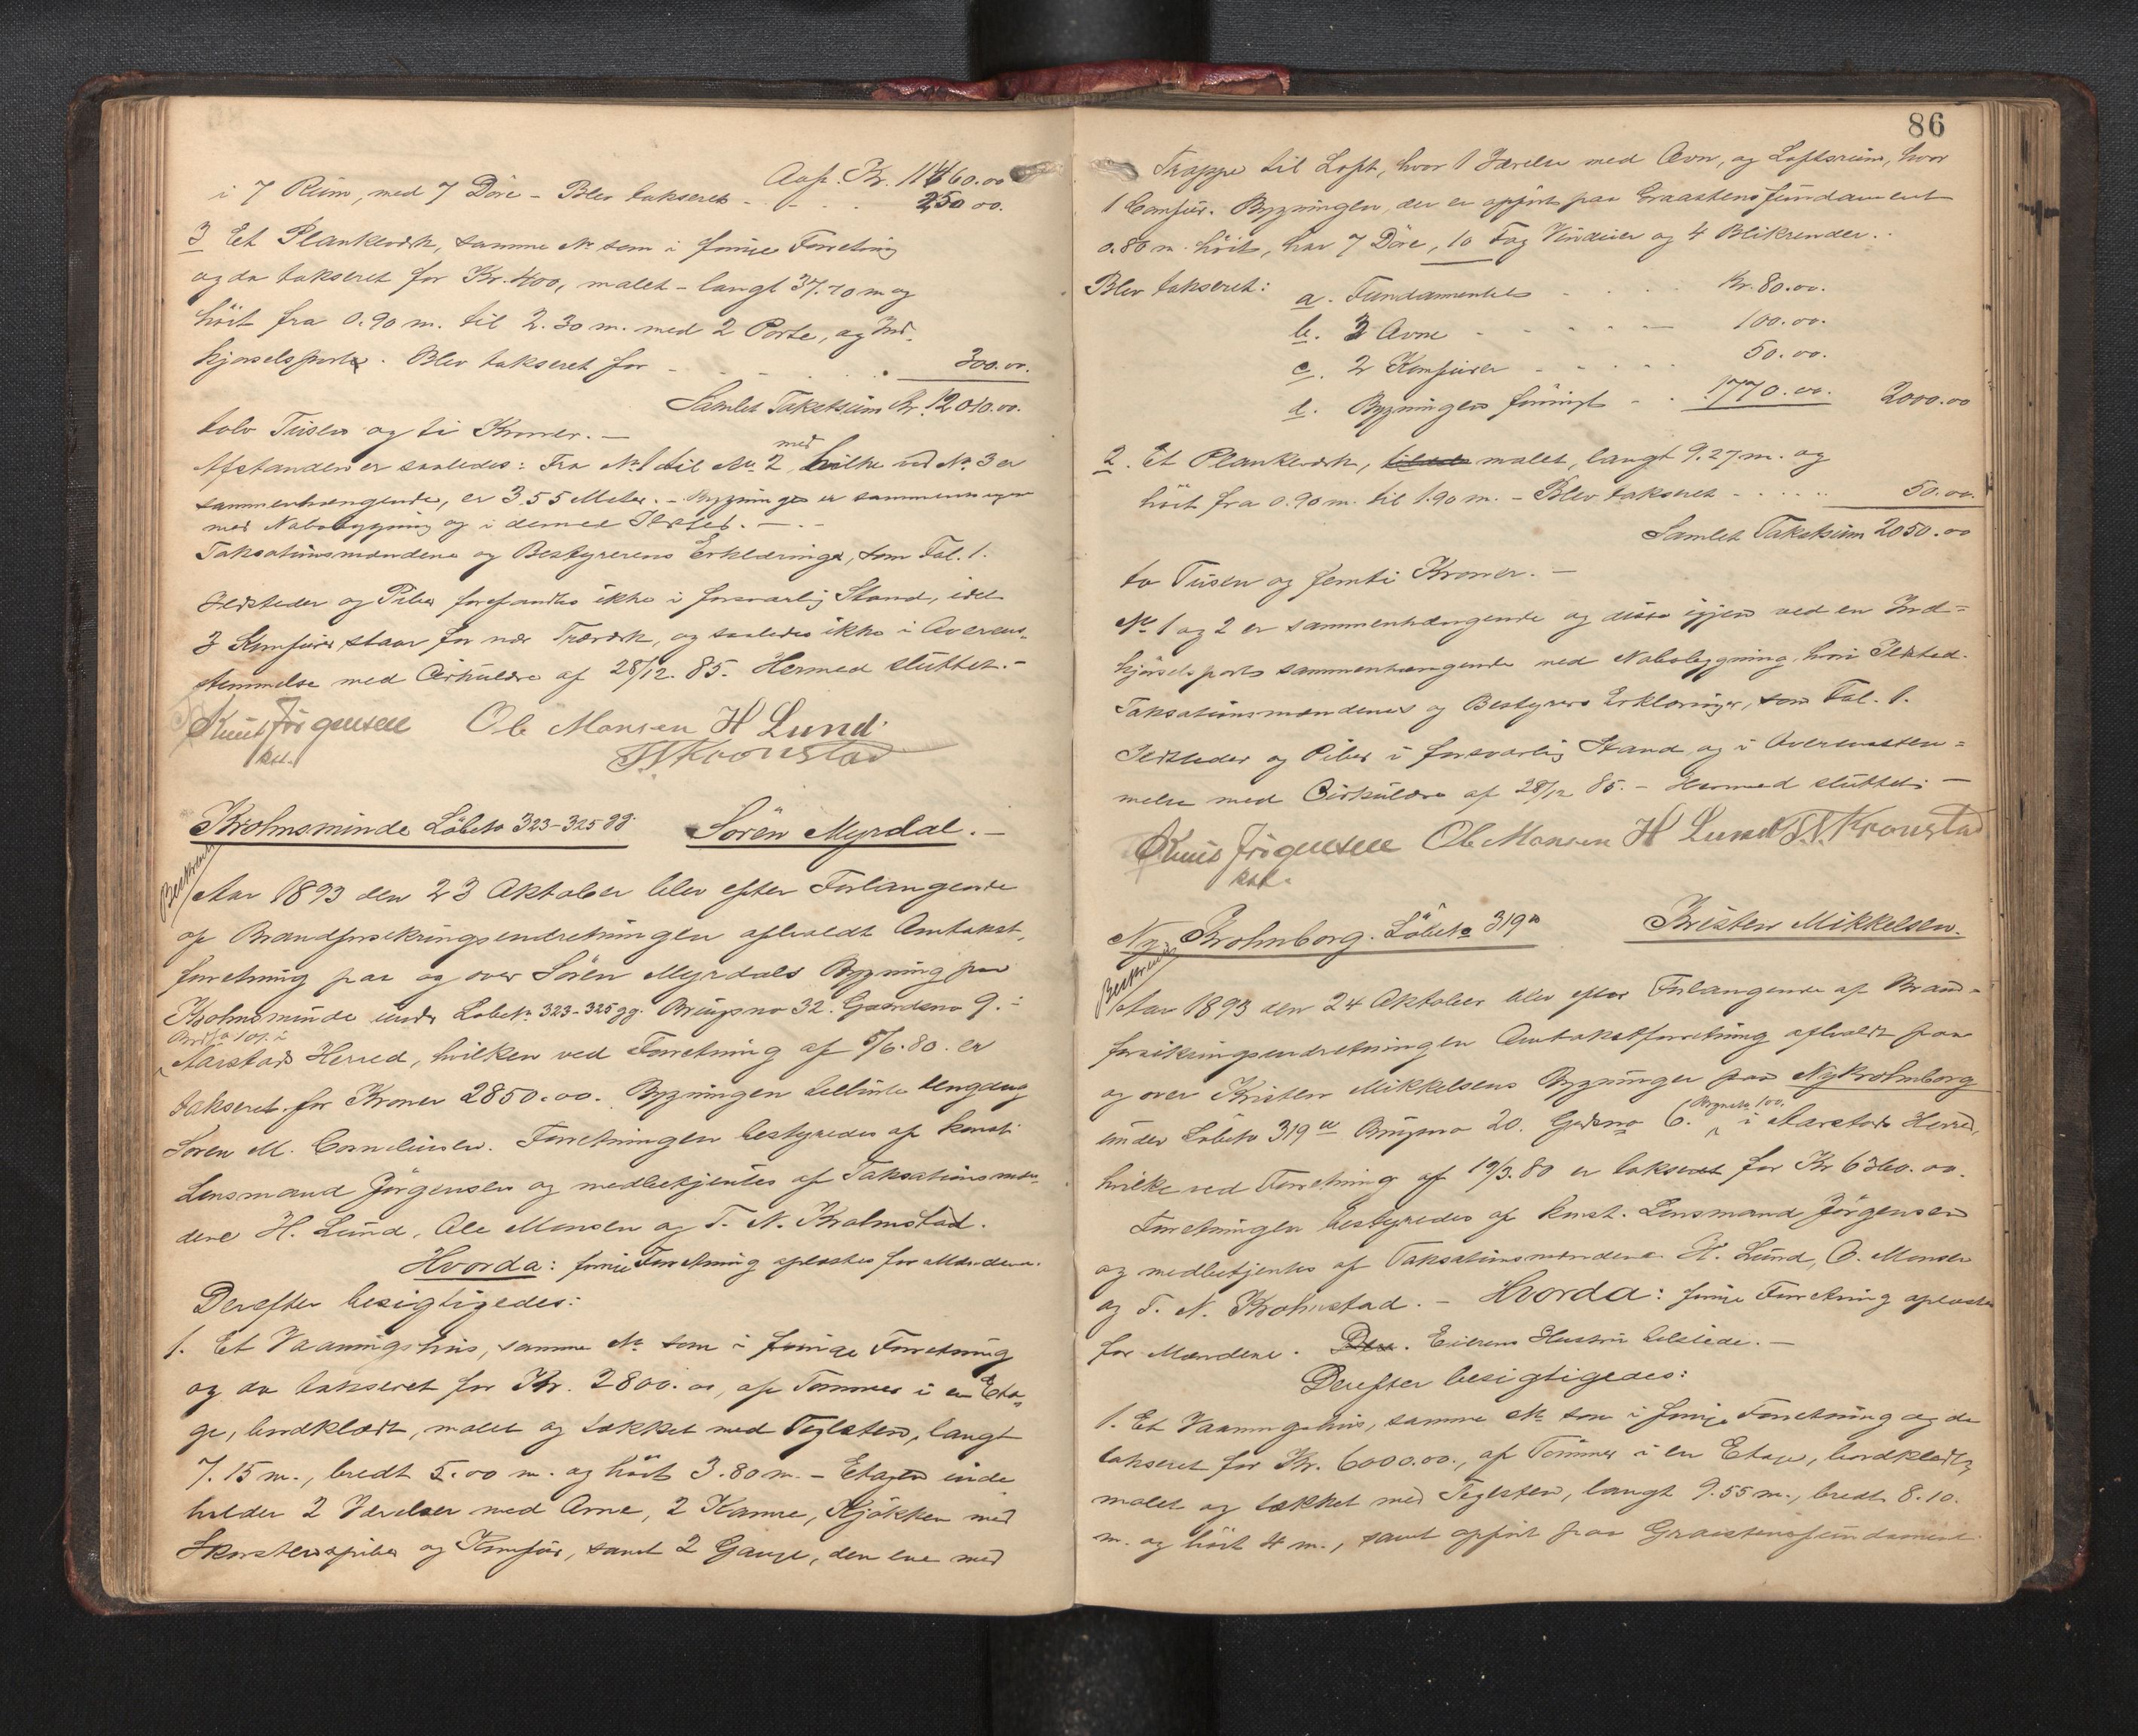 Ovf. Kr. 11460.00
i 7 Rum, med 7 Döre - Blev takseret - - - - 250 00.
3 Et Plankeverk, samme No som i forrige Forretning
og da takseret for Kr. 400, malet - langt 37.70 m og
höit fra 0.90 m. til 2.30 m. med 2 Porte, og Ind-
kjørselsport. Blev takseret for - - - - 300.00.
Samlet Takstsum Kr. 12010.00.
tolv Tusen og ti Kroner. —
Afstanden er saaledes: Fra No 1 til No 2, med hvilke No 3 er
sammenhængende, er 3.55 Meter. - Bygningen er sammenbygget
med Nabobygning og i denne Ildsted. — . -
Taksationsmændene og Bestyrerens Erklæringer, som Fol. 1.
Ildsteder og Piber forefandtes ikke i forsvarlig Stand, idet
3 Komfurer staar for nær Træverk, og saaledes ikke i Overens-
stemmelse med Cirkulære af 28/12. 85. Hermed sluttet. -
Knud Jörgensen Ole Monsen H Lund.
kst. T N Kronstad
Krohnsminde Löbeno 323-325 gg. Sören Myrdal. —
Beskrevet
Aar 1893 den 23 Oktober blev efter Forlangende
af Brandforsikringsindretningen afholdt Omtakst-
forretning paa og over Sören Myrdals Bygning paa
Krohnsminde under Löbeno 323-325 gg. Brugsno 32. Gaardsno 9. -
Bygn 101. i
Aarstad Herred, hvilken ved Forretning af 5/6. 80. er
takseret for Kroner 2850.00. Bygningen tilhørte længdeng
Sören M. Corneliusen. Forretningen bestyredes af konst.
Lensmand Jörgensen og medbetjentes af Taksationsmæn-
dene H. Lund, Ole Monsen og T. N. Krohnstad.
Hvorda: forrige Forretning oplæstes for Mændene.
Derefter besigtigedes:
1. Et Vaaningshus, samme No som i forrige Forretning
og da takseret for Kr. 2800.00, af Tømmer i en Eta-
ge, bordklædt, malet og tækket med Teglsten, langt
7.15 m., bredt 5.00 m. og höit 3.80 m. - Etagen inde-
holder 2 Værelser med Ovne, 2 Kamre, Kjökken med
Skorstenspibe og Komfur, samt 2 Gange, den ene med
86
Trappe til Loft, hvor 1 Værelse med Ovn, og Loftsrum, hvor
1 Comfur. Bygningen, der er opført paa Graastensfundament
0.80 m. höit, har 7 Döre, 10 Fag Vinduer og 4 Blikrender. .
Blev takseret: a. Fundamentet - - - - Kr. 80.00.
b. 3 Ovne - - - - — 100.00.
c. 2 Komfurer - - - - 50.00.
d. Bygningen forövrigt - - 1770.00. 2000.00
2. Et Plankeverk, malet, langt 9.27 m. og
höit fra 0.90 m. til 1.90 m. - Blev takseret - - - - 50.00.
Samlet Takstsum 2050.00
to Tusen og femti Kroner. —
No 1 og 2 er sammenhængende og disse igjen ved en Ind-
kjørselsport sammenhængende med Nabobygning, hvori Ildsted.
Taksationsmændenes og Bestyrers Erklæringer, som Fol. 1.
Ildsteder og Piber i forsvarlig Stand og i Overensstem-
melse med Cirkulære af 28/12 85. - Hermed sluttet. —
Knud Jörgensen Ole Monsen H Lund T. N. Kronstad
kst.
Ny Krohnborg. Löbeno 319 Kristen Mikkelsen.
Beskrevet
Aar 1893 den 24 Oktober blev efter Forlangende af Brand-
forsikringsindretningen Omtakstforretning afholdt paa
og over Kristen Mikkelsens Bygninger paa Ny Krohnborg
under Löbeno 319 Brugsno 20. Gaardsno 6. Bygn 100. i Aarstad Herred,
hvilke ved Forretning af 19/3. 80 er takseret for Kr 6360.00.
Forretningen bestyredes af konst. Lensmand Jörgensen
og medbetjentes af Taksationsmændene H. Lund, O. Monsen
og T. N. Krohnstad. - Hvorda: forrige Forretning oplæstes
for Mændene. Eierens Hustru tilstede. —
Derefter besigtigedes:
1. Et Vaaningshus, samme No som i forrige Forretning og da
takseret for Kr. 6000.00., af Tømmer i en Etage, bordklædt,
malet og tækket med Teglsten, langt 9.55 m., bredt 8.10.
m. og höit 4 m., samt opført paa Graastensfundament